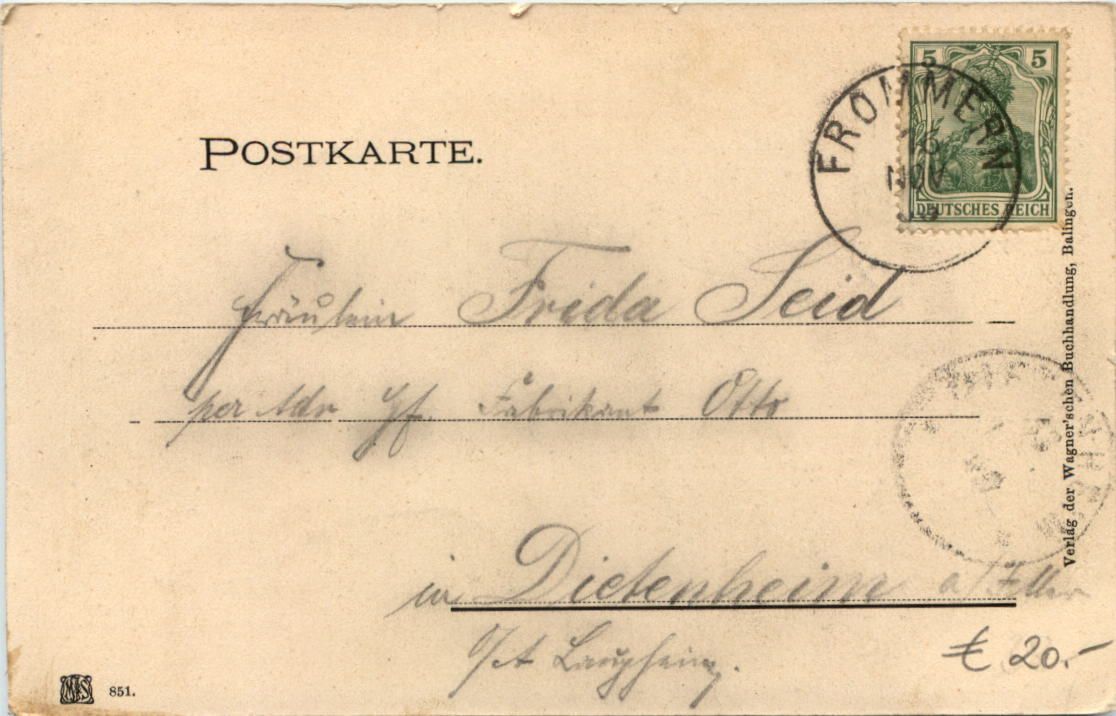 5 5
DEUTSCHES REICH
FROMMERN
16
NOV
POSTKARTE.
Fräulein Frida Seid
per Adr Hf. Fabrikant Otto
in Dietenheim a/Iller
O/A Laupheim.
€ 20.-
Verlag der Wagner'schen Buchhandlung, Balingen.
851.